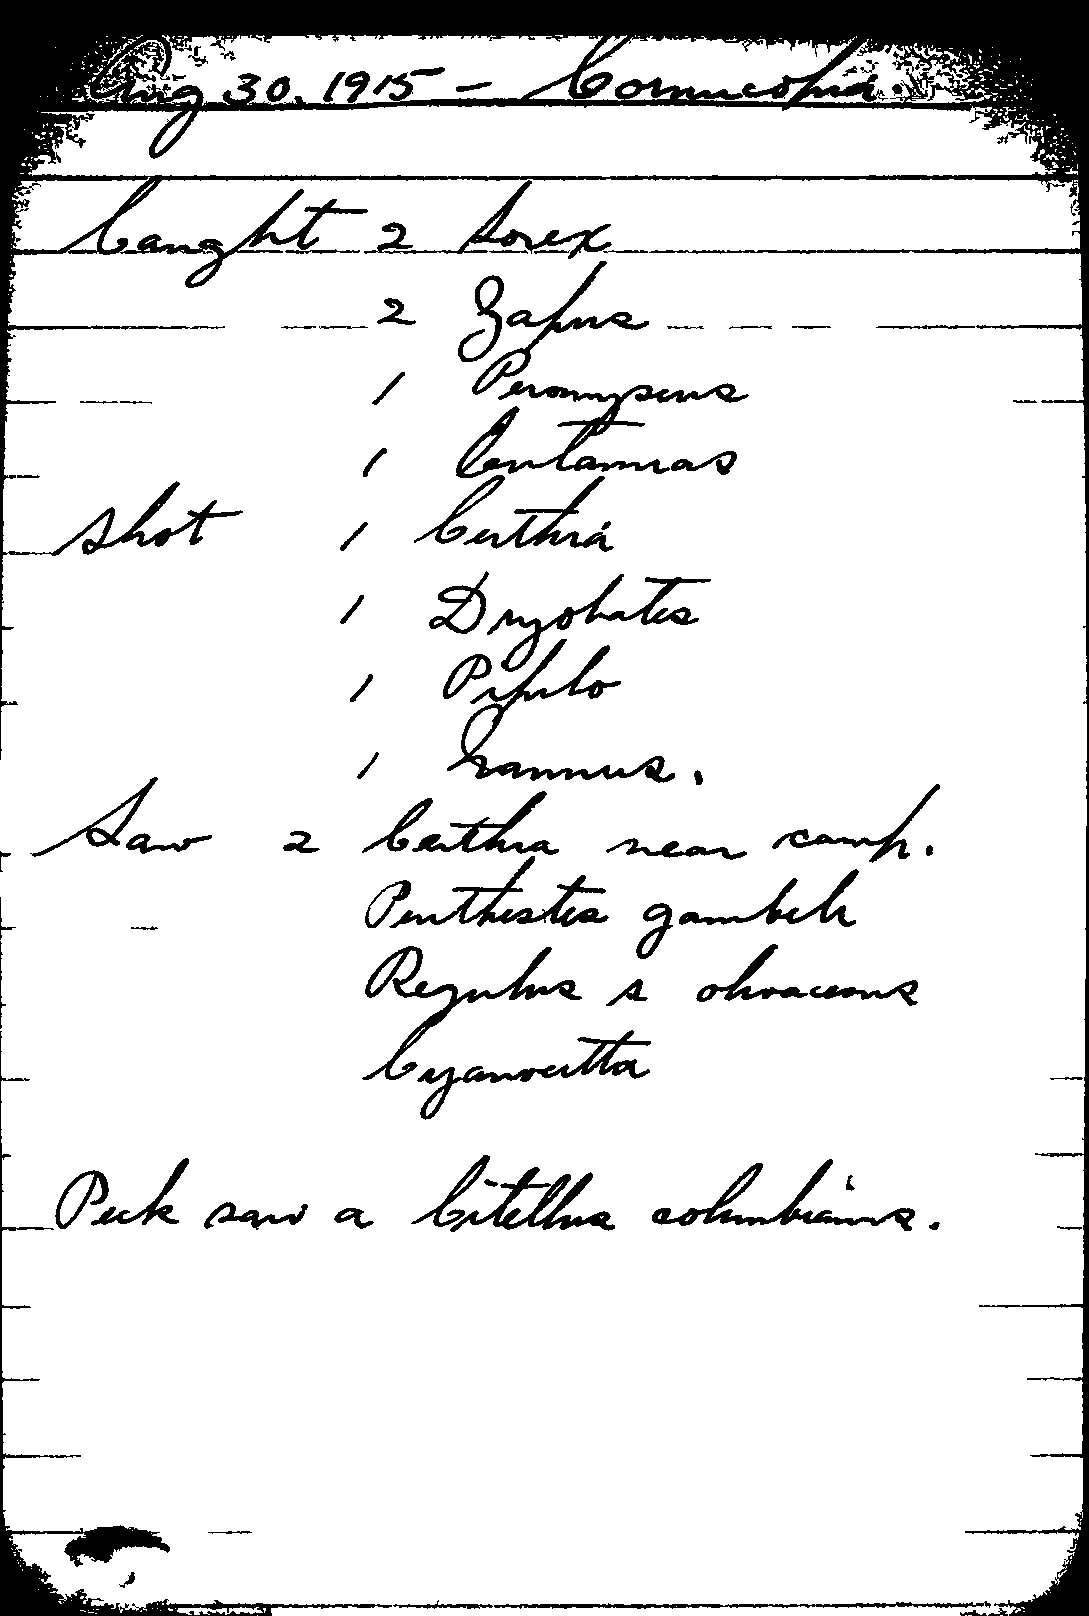 Aug 30, 1915 - Cornucopia.
Caught 2 Sorex
2 Zapus
1 Peromyscus
1 Eutamias
Shot 1 Certhia
1 Dryobates
1 Pipilo
1
Saw 2 Certhia near camp.
Penthestes gambeli
Regulus s olivaceous
Cyanocitta
Peck saw a Citellus columbianus.